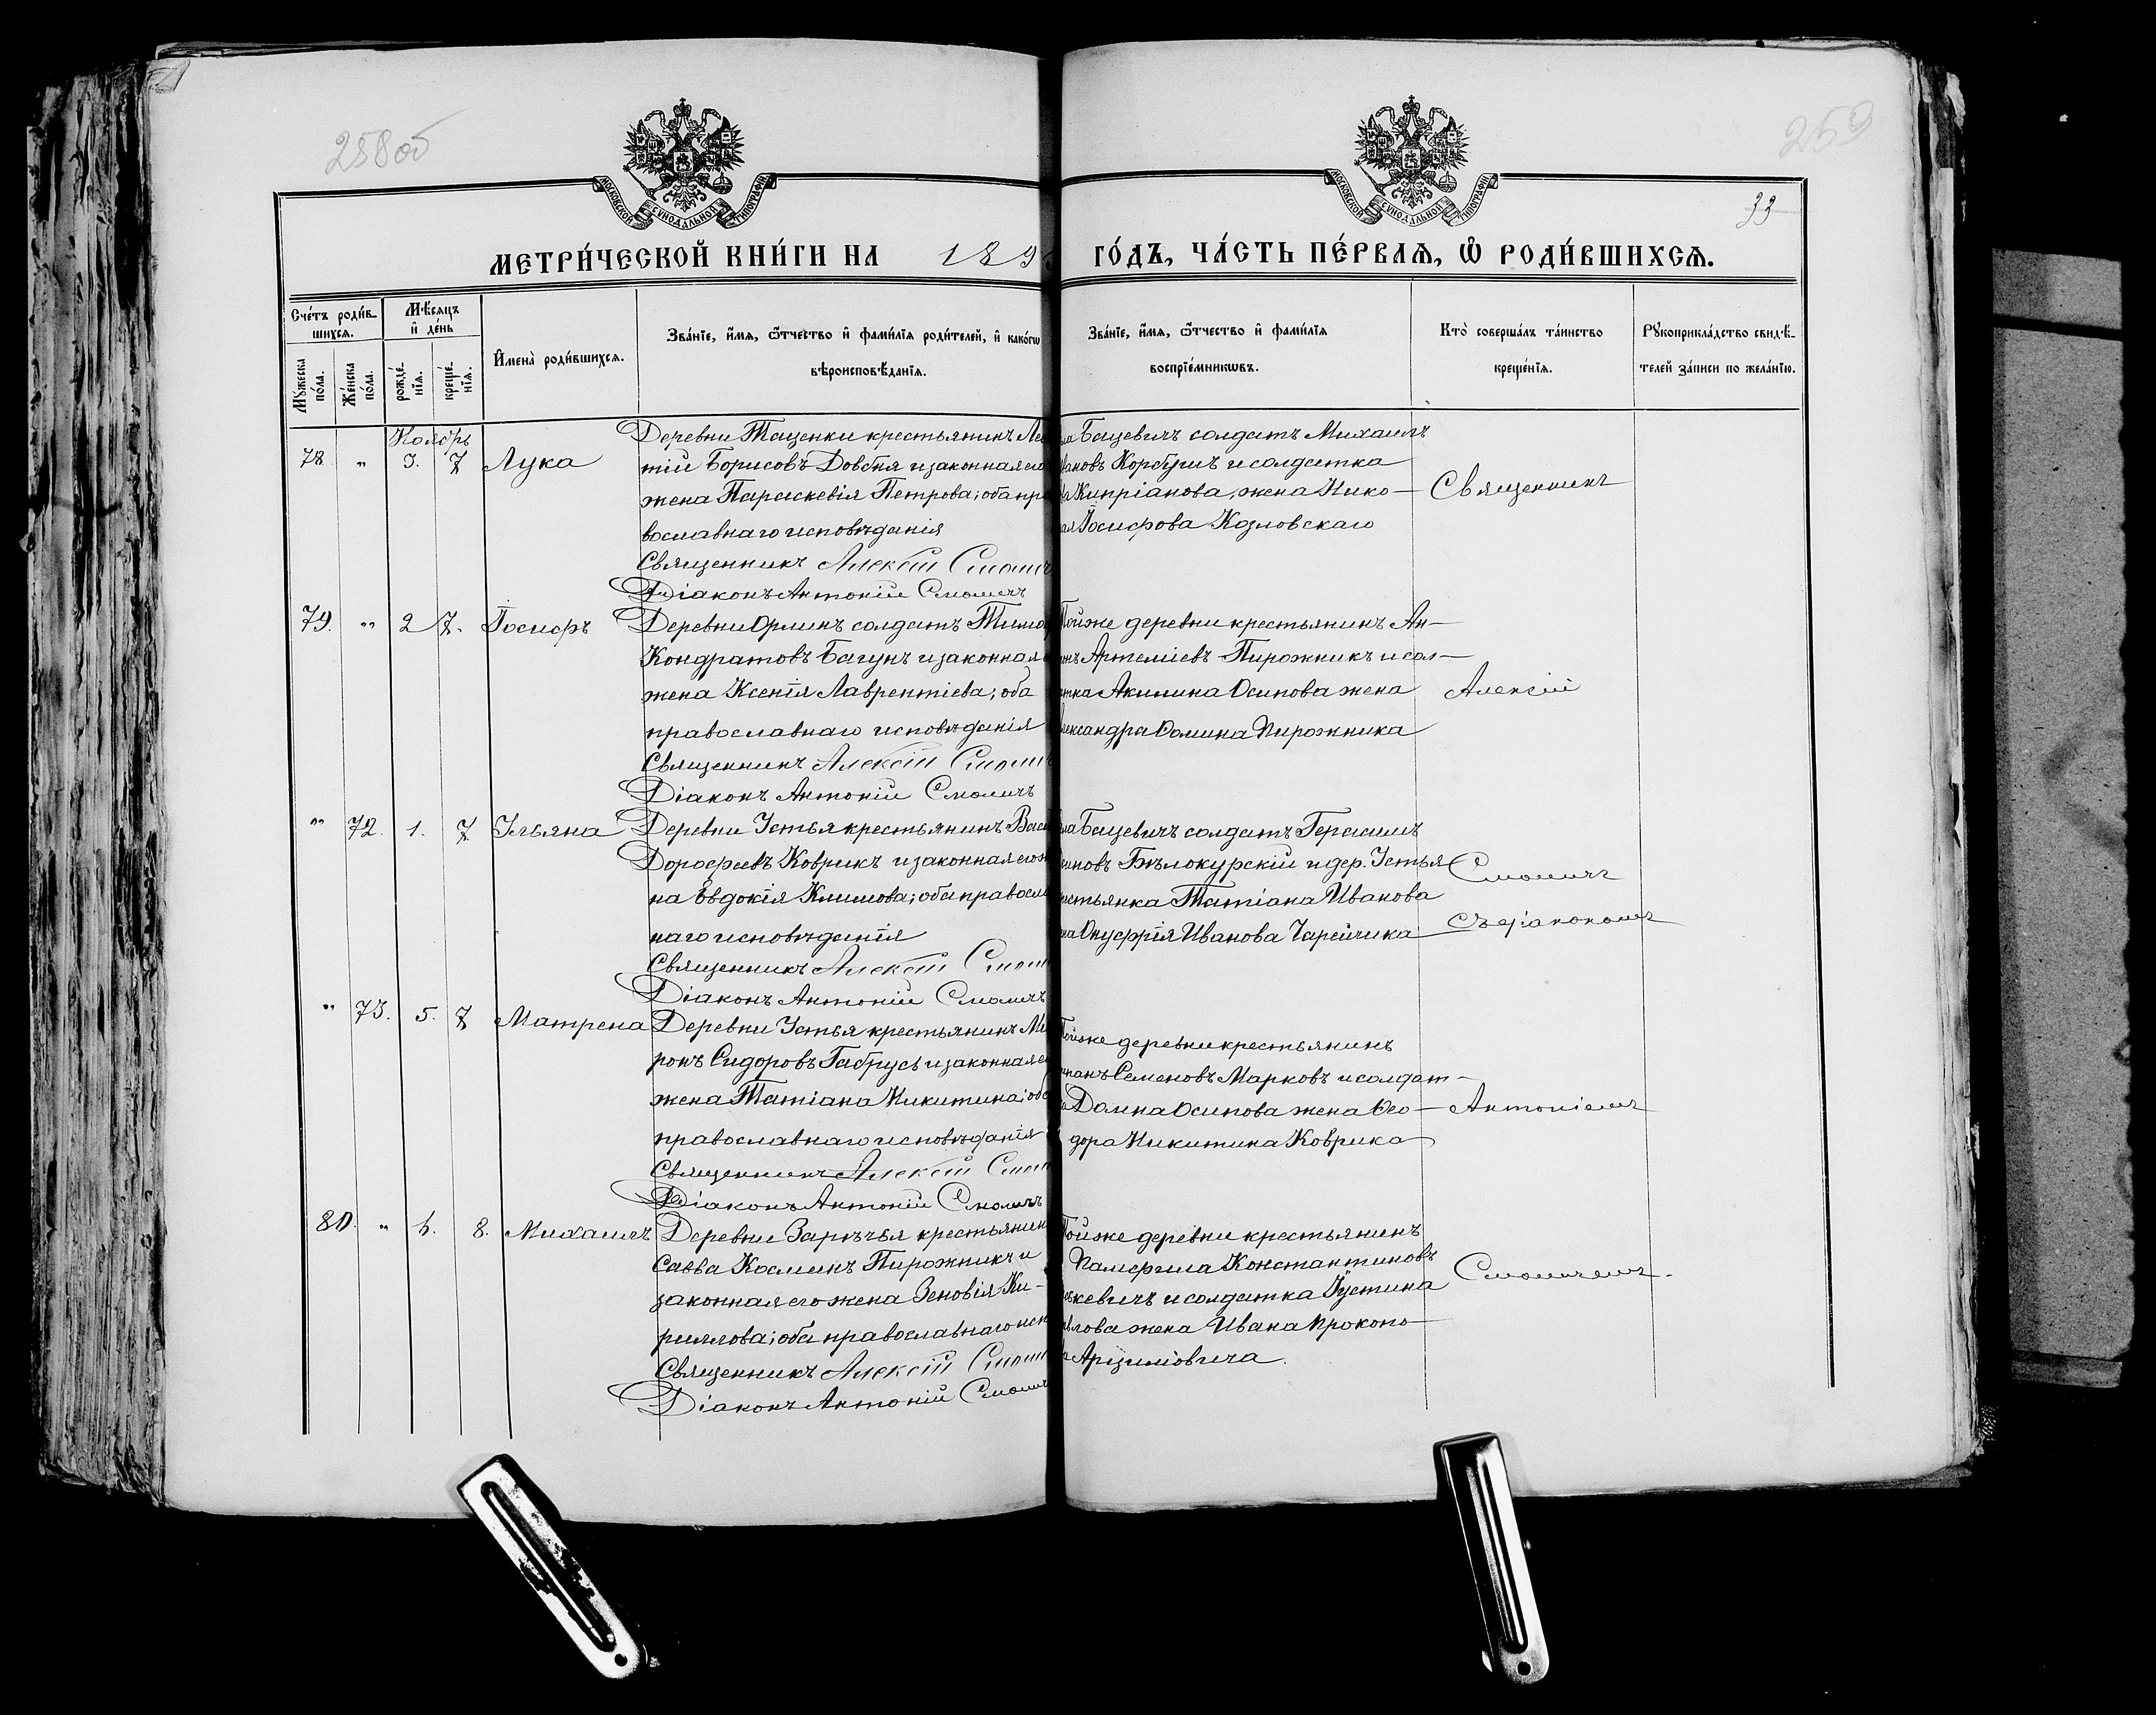 258 об
259
33
МОСКОВСКОЙ СУНОДАЛЬНОЙ ТИПОГРАФІИ
МОСКОВСКОЙ СУНОДАЛЬНОЙ ТИПОГРАФІИ
МЕТРИ́ЧЕСКОЙ КНИ́ГИ НА 189
ГО́ДЪ, ЧА́СТЬ ПЕ́РВАѦ, Ѡ҆ РОДИ́ВШИХСѦ.
Счéтъ роди́в-
шихсѧ.
Мѣ́сѧцъ
и҆ де́нь
Мꙋ́жеска
по́ла.
Же́нска
по́ла.
рожде́-
нїѧ.
креще́-
нїѧ.
И҆мена̀ роди́вшихсѧ.
Зва́нїе, и҆́мѧ, ѻ҆́тчество и҆ фами́лїѧ роди́телей, и҆ како́гѡ
вѣроисповѣ́данїѧ.
Зва́нїе, и҆́мѧ, ѻ҆́тчество и҆ фами́лїѧ
воспрїе́мникѡвъ.
Кто̀ соверша́лъ та́инство
креще́нїѧ.
Рꙋкоприкла́дство свидѣ́-
телей за́писи по жела́нїю.
Ноябрь
78 " 3. 7 Лука
Деревни Таценки крестьянинъ Ле
тій Борисовъ Довбня и законная его
жена Параскевія Петрова; оба пра
вославнаго исповѣданія
Священникъ Алексій Смолич
Діаконъ Антоній Смоличъ
Бацевичъ солдатъ Михаилъ
вановъ Корбутъ и солдатка
Кипріанова, жена Нико-
лая Іосифова Козловскаго
Священникъ
79. " 2 7. Іосифъ
Деревни Орлинъ солдатъ Тимо
Кондратовъ Багунъ и законная
жена Ксенія Лаврентіева; оба
православнаго исповѣданія
Священникъ Алексій Смоли
Діаконъ Антоній Смоличъ
Тойже деревни крестьянинъ Ан-
онъ Артеміевъ Пирожникъ и сол-
атка Акилина Осипова жена
лександра Ѳомина Пирожника
Алексій
" 72. 1. 7 Ульяна
Деревни Устья крестьянинъ Васи
Дорофеевъ Коврикъ и законная его ж
на Евдокія Климова; оба правосла
наго исповѣданія
Священникъ Алексій Смоли
Діаконъ Антоній Смоличъ
Бацевичъ солдатъ Герасимъ
Бѣлокурскій и дер. Устья
рестьянка Татіана Иванова
на Онуфрія Иванова Чарейчика
Смоличъ
съ діакономъ
" 73. 5. 7 Матрена
Деревни Устья крестьянинъ Ми
ронъ Сидоровъ Габрусь и законная е
жена Татіана Никитина; оба
православнаго исповѣданія
Священникъ Алексій Смоли
Діаконъ Антоній Смоличъ
Тойже деревни крестьянинъ
Семеновъ Марковъ и солдат-
Домна Осипова жена Ѳео-
дора Никитина Коврика
Антоніемъ
80. " 4. 8. Михаилъ
Деревни Зарѣчья крестьянин
Савва Космынъ Пирожникъ и
законная его жена Зеновія Ки-
риллова; оба православнаго исп
Священникъ Алексій Смоли
Діаконъ Антоній Смолич
Тойже деревни крестьянинъ
Памфила Константиновъ
ькевичъ и солдатка Іустина
влова жена Ивана Прокопо-
Арцимовича.
Смоличемъ.